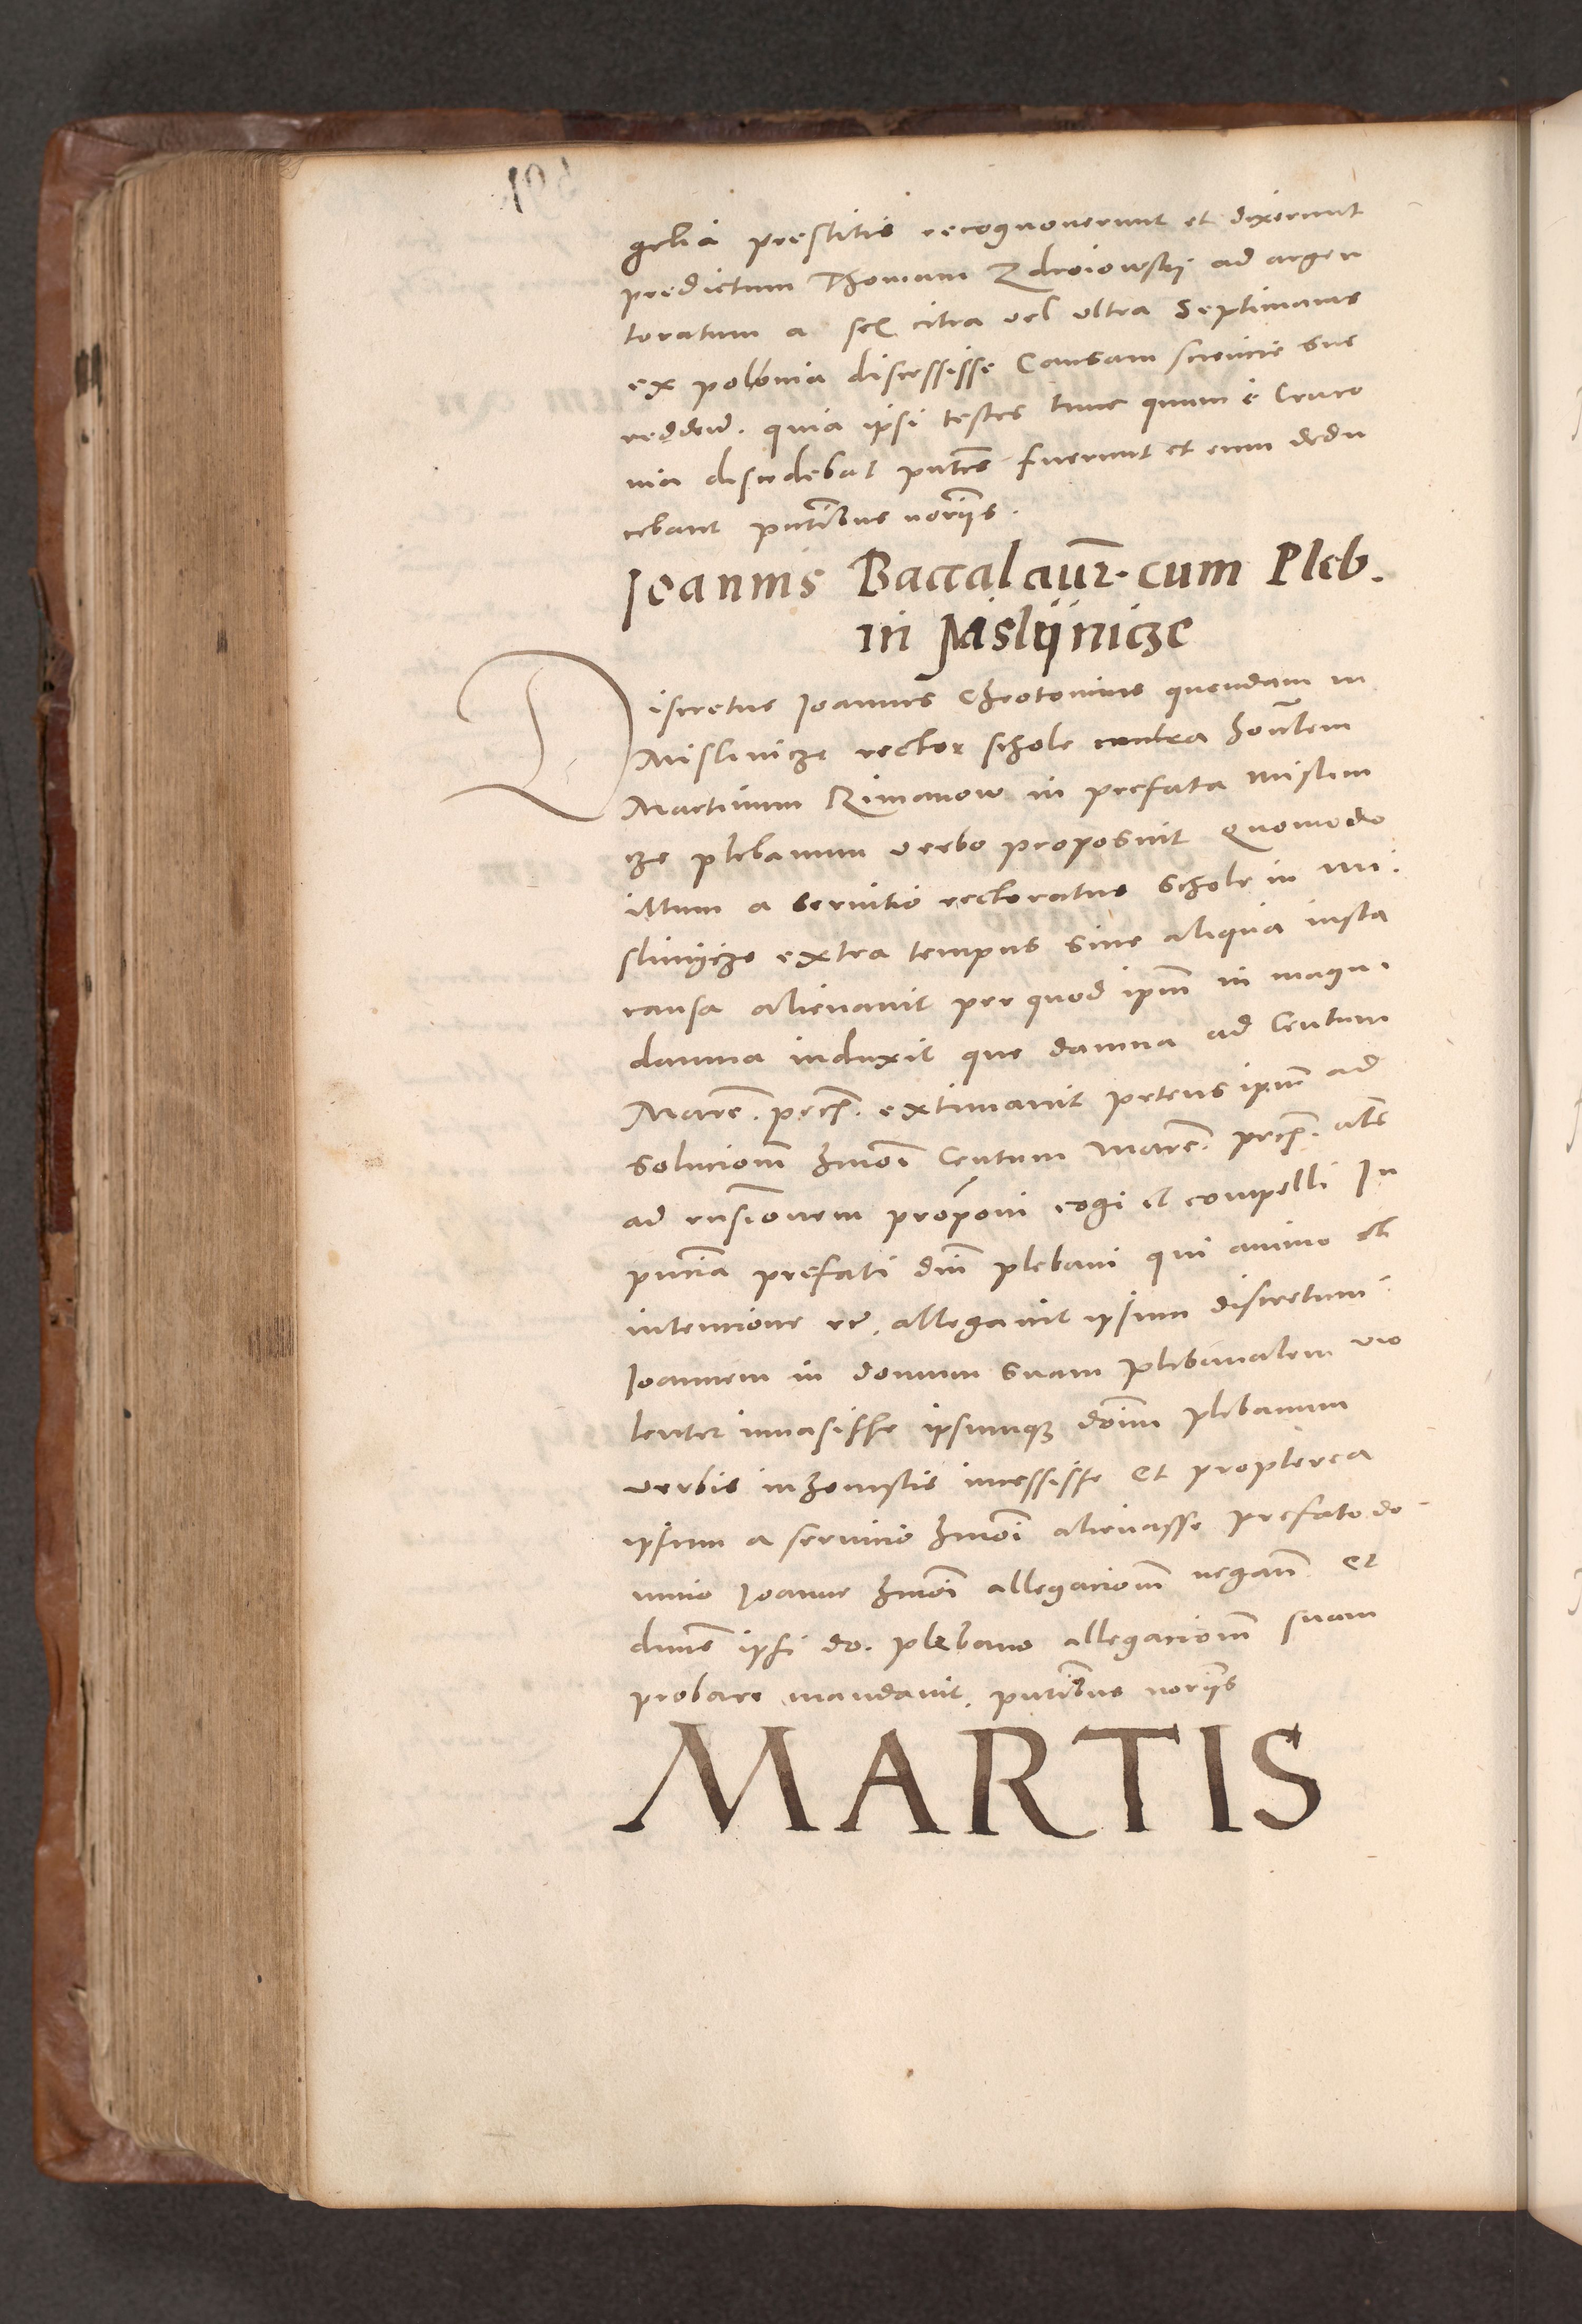 gelia prestitis recognoverunt et dixerunt
predictum Thomam Zdroiowskij ad argen
toratum a sex citra vel ultra Septimanis
ex polonia discessisse Causam sciencie sue
redden̄. quia ipsi testes tunc quum e Craco
via discedebat pntes fuerunt et eum dedu
cebant pntibus noriis.
Joannis Baccalaur. cum Pleb.
in Mislijnicze
Discretus Joannes Chrotonius quendam in
Mislinicze rector schole contra honblem
Martinum Rimanow in prefata Mislini
cze plebanum verbo proposuit Quomodo
illum a servitio rectoratus Schole in Mi
slinijcze extra tempus sine aliqua iusta
causa alienavit per quod ipm in magn.
damna induxit que damna ad Centum
Marc. pecp. extimavit petens ipm ad
solucionem hmoi Centum Marc. pecp. als
ad rnsionem proponi cogi et compelli In
pncia prefati dni plebani qui animo etc
intencione etc. allegavit ipsum discretum
Joannem in domum suam plebanalem vio
lenter invasisse ipsumq3 dom plebanum
verbis inhonestis incessisse et propterea
ipsum a servicio hmoi alienasse prefato do
mino Joanne hmoi allegacionem negan̄ Et
dnus ipsi do. plebano allegacionem suam
probare mandavit. pntibus noriis
MARTIS